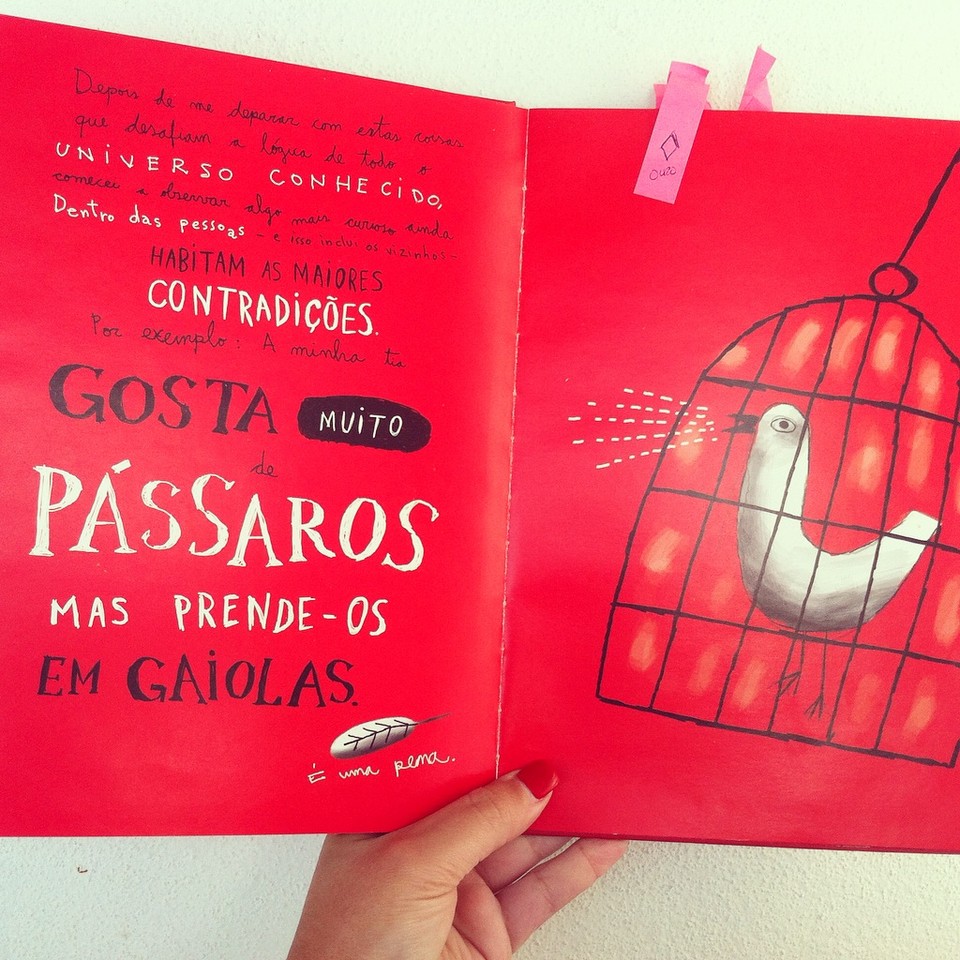 Depois de me deparar com estas coisas
que desafiam a lógica de todo o
UNIVERSO CONHECIDO,
comecei a observar algo mais curioso ainda
Dentro das pessoas - e isso inclui os vizinhos -
HABITAM AS MAIORES
CONTRADIÇÕES.
Por exemplo: A minha tia
GOSTA MUITO
de
PÁSSAROS
MAS PRENDE-OS
EM GAIOLAS.
É uma pena.
OURO